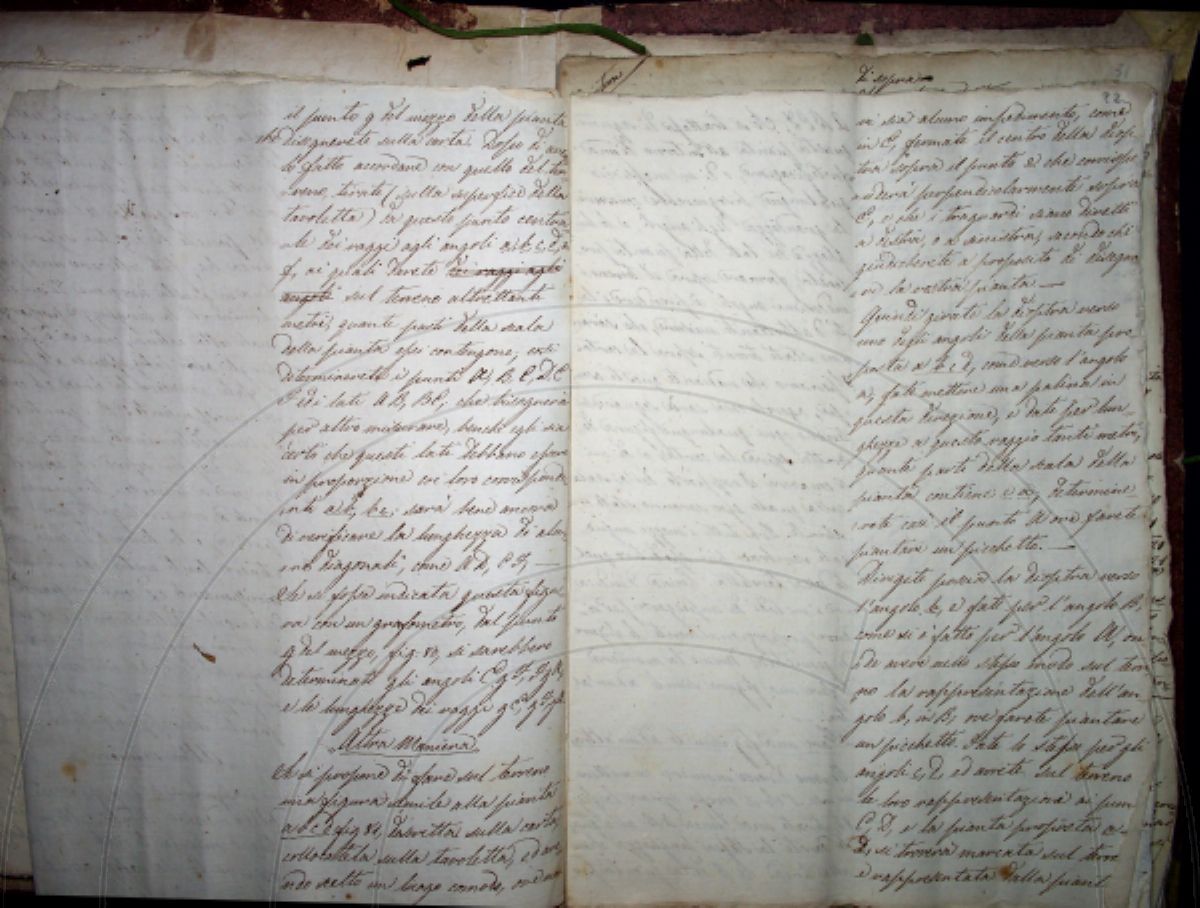 il punto g del mezzo della pianta
disegnerete sulla carta. Dopo di aver
lo fatto accordare con quello del ter
reno, tirate (sulla superficie della
tavoletta) da questo punto centra
le dei raggi agli angoli a, b, c, d, e
f, ai quali darete dei raggi agli
angoli sul terreno altrettanti
metri, quante parti della scala
della pianta essi contengono, così
determinerete i punti A, B, C, D, E
F, ed i lati AB, BC, che bisognerà
per altro misurare, benchè egli sia
certo che questi lati debbano essere
in proporzione coi loro corrisponde
nti ab, bc; sarà bene ancora
di verificare la lunghezza di alcu
ne diagonali, come AD, CF, —
Se si fosse indicata questa figu
ra con un grafometro, dal punto
g del mezzo, fig. 80, si sarebbero
determinati gli angoli
e le lunghezze dei raggi
Altra Maniera
Se si propone di fare sul terreno
una figura simile alla pianta
a b c d fig. 81, descritta sulla carta,
collocatela sulla tavoletta, ed ave
ndo scelto un luogo comodo, ove non
di sopra
22
vi sia alcuno impedimento, come
in E, fermate il centro della diop
tra sopra il punto e che corrispo
nderà perpendicolarmente sopra
E, e che i traguardi siano diretti
a destra, o a sinistra, secondo chè
giudicherete a proposito di disegna
re la vostra pianta —
Quindi girate la dioptra verso
uno degli angoli della pianta pro
posta a b c d, come verso l'angolo
a, fate mettere una palina in
questa direzione, e date per lun
ghezza a questo raggio tanti metri,
quante parti della scala della
pianta contiene e a, determine
rete così il punto A ove farete
piantare un picchetto. —
Dirigete poscia la dioptra verso
l'angolo b, e fate per l'angolo B,
come si è fatto per l'angolo A, on
de avere nello stesso modo sul terre
no la rappresentazione dell'an
golo b, in B, ove farete piantare
un picchetto. Fate lo stesso per gli
angoli c, d, ed avrete sul terreno
la loro rappresentazione ai pun
C, D, e la pianta proposta a
D, si troverà marcata sul terr
e rappresentata dalla piant